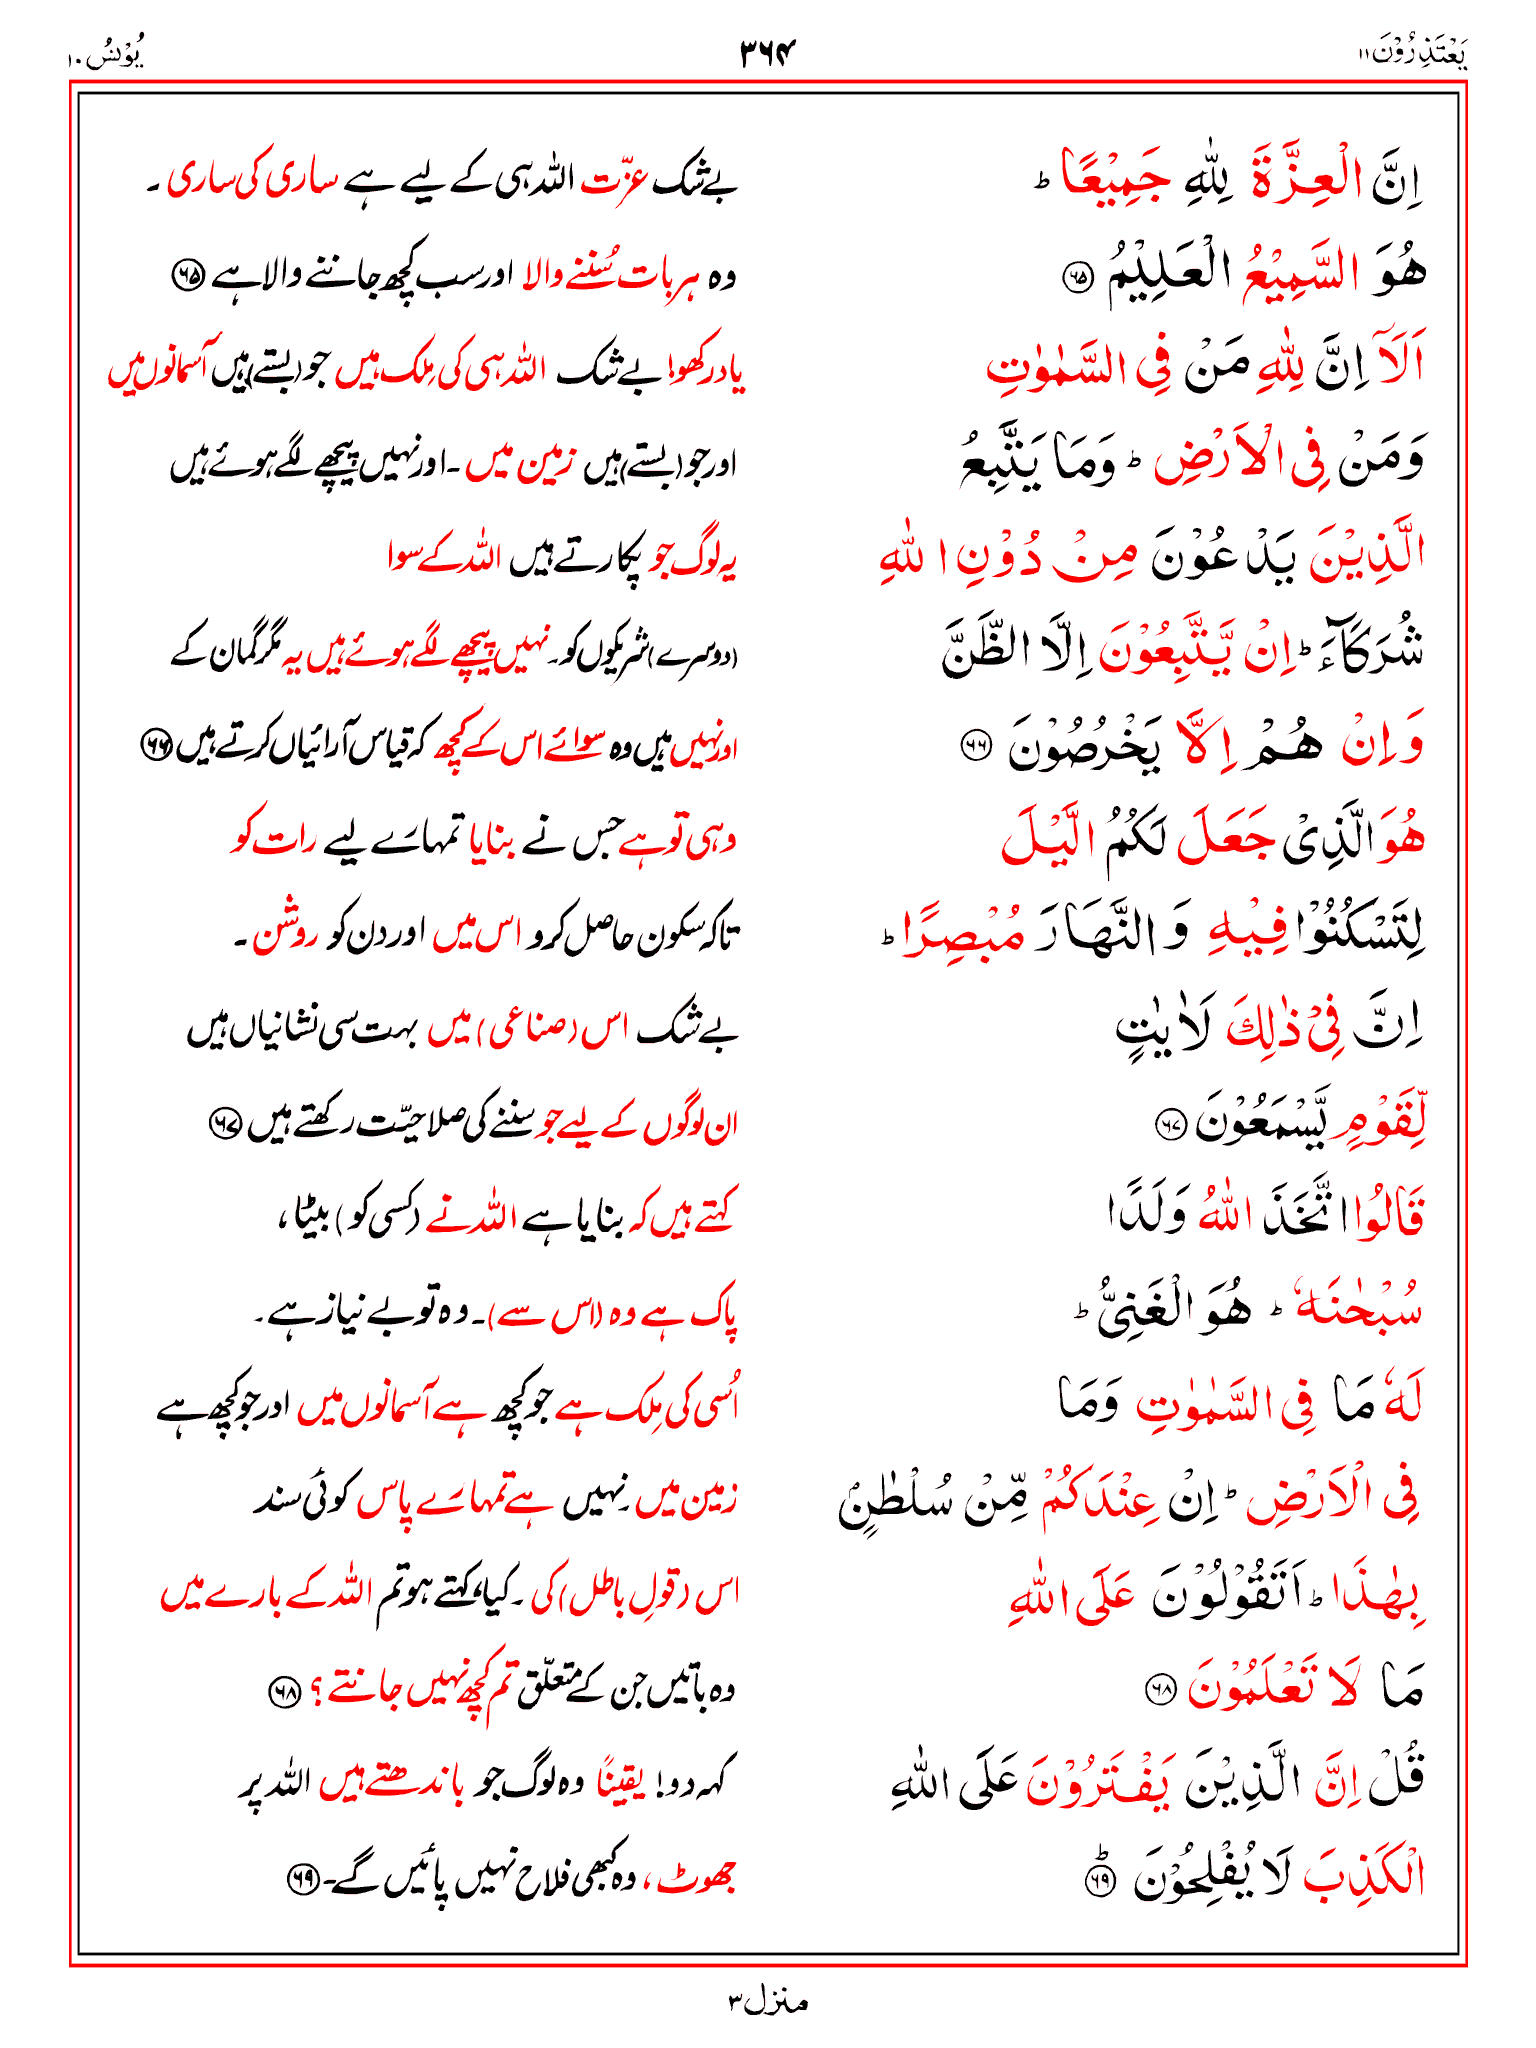 یَعْتَذِرُوْنَ ۱۱
۳۶۴
یُوْنُسُ ۱۰
اِنَّ الْعِزَّةَ لِلّٰهِ جَمِیْعًا ؕ
بے شک عزّت اللہ ہی کے لیے ہے ساری کی ساری ۔
هُوَ السَّمِیْعُ الْعَلِیْمُ ﴿۶۵﴾
وہ ہر بات سُننے والا اور سب کچھ جاننے والا ہے ﴿۶۵﴾
اَلَاۤ اِنَّ لِلّٰهِ مَنْ فِی السَّمٰوٰتِ
یاد رکھو! بے شک اللہ ہی کی مِلک ہیں جو (بستے) ہیں آسمانوں میں
وَمَنْ فِی الْاَرْضِ ؕ وَمَا یَتَّبِعُ
اور جو (بستے) ہیں زمین میں ۔ اور نہیں پیچھے لگے ہوئے ہیں
الَّذِیْنَ یَدْعُوْنَ مِنْ دُوْنِ اللّٰهِ
یہ لوگ جو پکارتے ہیں اللہ کے سوا
شُرَكَآءَ ؕ اِنْ یَّتَّبِعُوْنَ اِلَّا الظَّنَّ
(دوسرے) شریکوں کو۔ نہیں پیچھے لگے ہوئے ہیں یہ مگر گمان کے
وَاِنْ هُمْ اِلَّا یَخْرُصُوْنَ ﴿۶۶﴾
اور نہیں ہیں وہ سوائے اس کے کچھ کہ قیاس آرائیاں کرتے ہیں ﴿۶۶﴾
هُوَ الَّذِیْ جَعَلَ لَكُمُ الَّیْلَ
وہی تو ہے جس نے بنایا تمہارے لیے رات کو
لِتَسْكُنُوْا فِیْهِ وَالنَّهَارَ مُبْصِرًا ؕ
تاکہ سکون حاصل کرو اس میں اور دن کو روشن ۔
اِنَّ فِیْ ذٰلِكَ لَاٰیٰتٍ
بے شک اس (صناعی) میں بہت سی نشانیاں ہیں
لِّقَوْمٍ یَّسْمَعُوْنَ ﴿۶۷﴾
ان لوگوں کے لیے جو سننے کی صلاحیّت رکھتے ہیں ﴿۶۷﴾
قَالُوا اتَّخَذَ اللّٰهُ وَلَدًا
کہتے ہیں کہ بنایا ہے اللہ نے (کسی کو) بیٹا،
سُبْحٰنَهٗ ؕ هُوَ الْغَنِیُّ ؕ
پاک ہے وہ (اس سے)۔ وہ تو بے نیاز ہے ۔
لَهٗ مَا فِی السَّمٰوٰتِ وَمَا
اُسی کی مِلک ہے جو کچھ ہے آسمانوں میں اور جو کچھ ہے
فِی الْاَرْضِ ؕ اِنْ عِنْدَكُمْ مِّنْ سُلْطٰنٍۭ
زمین میں ۔ نہیں ہے تمہارے پاس کوئی سند
بِهٰذَا ؕ اَتَقُوْلُوْنَ عَلَی اللّٰهِ
اس (قولِ باطل) کی ۔ کیا کہتے ہو تم اللہ کے بارے میں
مَا لَا تَعْلَمُوْنَ ﴿۶۸﴾
وہ باتیں جن کے متعلّق تم کچھ نہیں جانتے ؟ ﴿۶۸﴾
قُلْ اِنَّ الَّذِیْنَ یَفْتَرُوْنَ عَلَی اللّٰهِ
کہہ دو! یقیناً وہ لوگ جو باندھتے ہیں اللہ پر
الْكَذِبَ لَا یُفْلِحُوْنَ ؕ ﴿۶۹﴾
جھوٹ ، وہ کبھی فلاح نہیں پائیں گے۔ ﴿۶۹﴾
منزل ۳